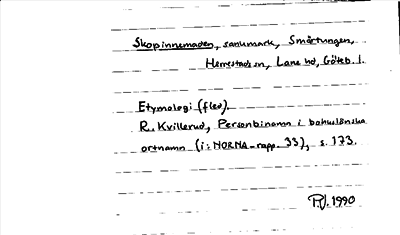 Skopinnemaden, sankmark, Smörtungen,
Herrestads sn, Lane hd, Göteb. l.
Etymologi (fled).
R. Kvillerud, Personbinamn i bohuslänska
ortnamn (i: NORNA-rapp. 33), s. 173.
1990